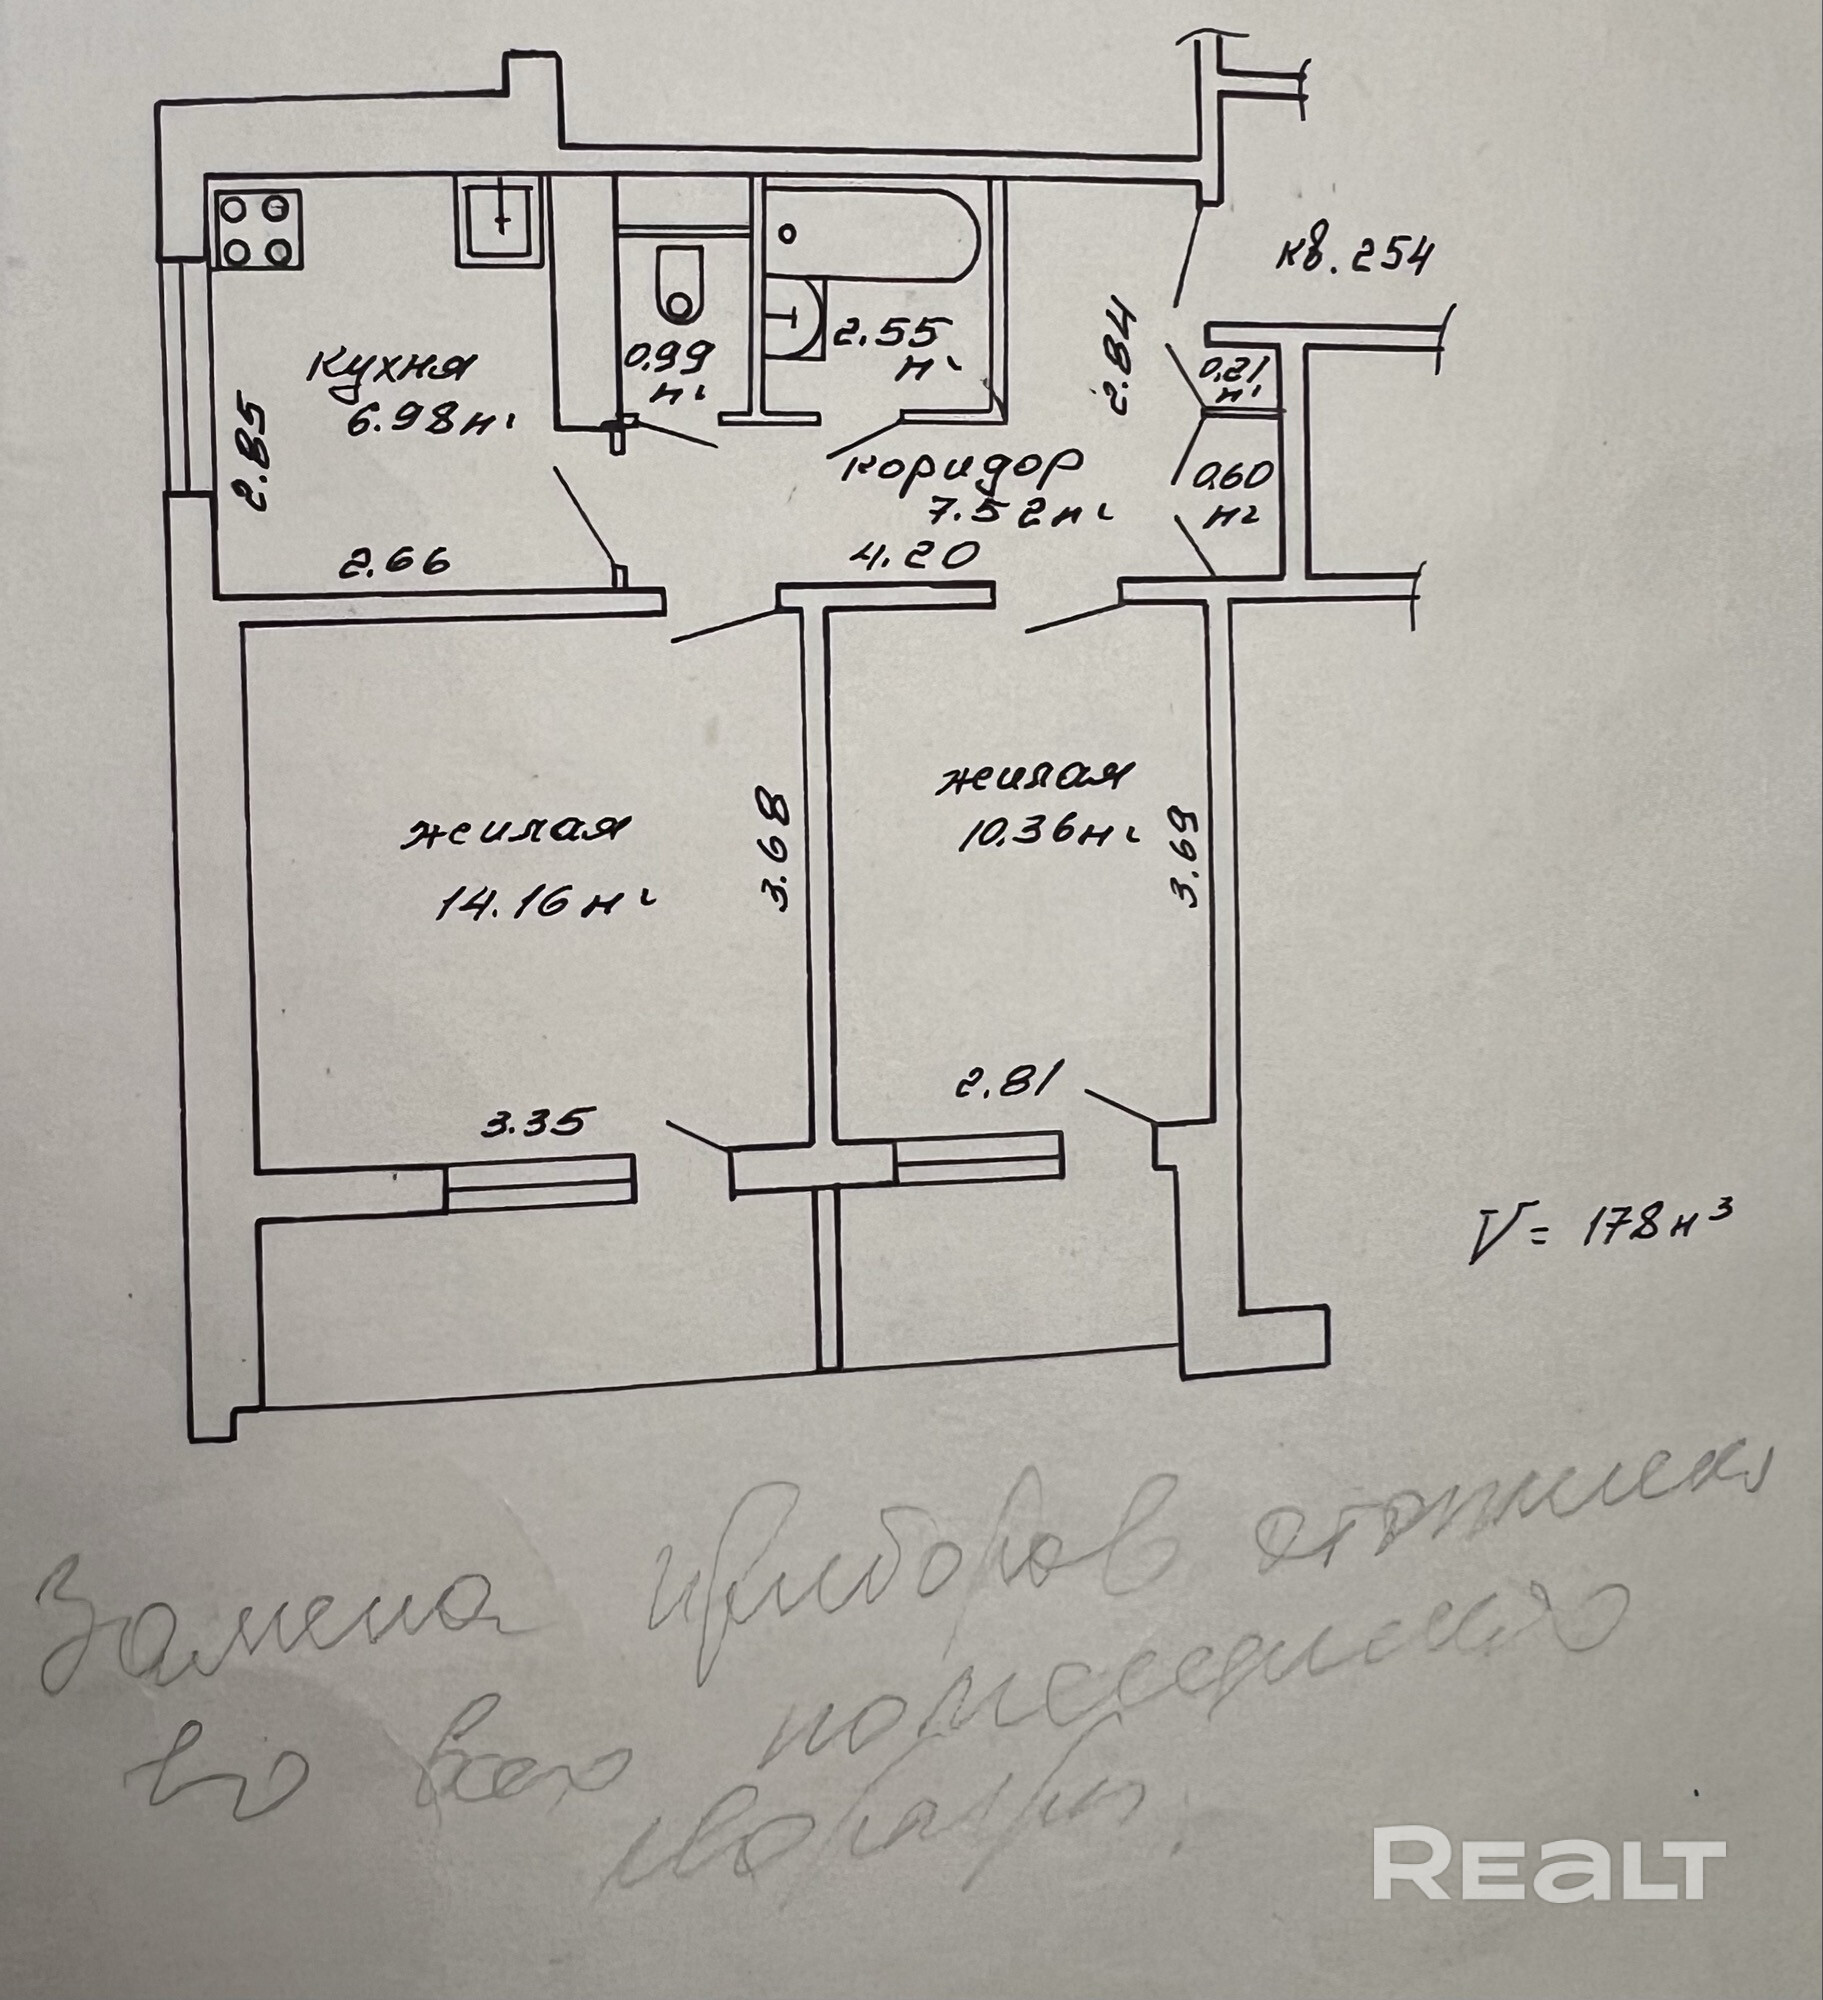 кв. 254
2.84
0.21 м²
0.99 м²
2.55 м²
Кухня
6.98 м²
2.85
2.66
коридор
7.52 м²
4.20
0.60 м²
жилая
14.16 м²
3.68
3.35
жилая
10.36 м²
3.69
2.81
V = 178 м³
Замена приборов отоплен
во всех помещениях
квартиры.
REALT